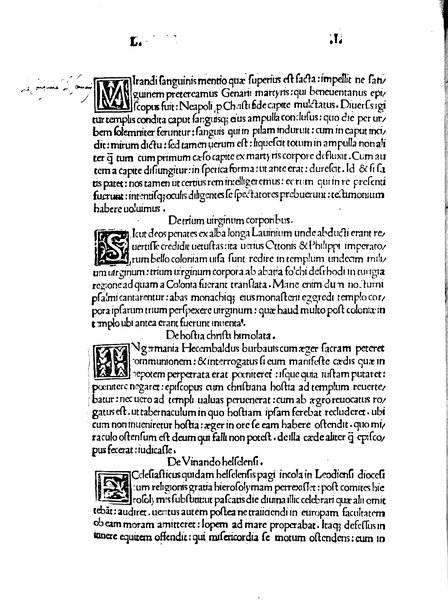 L. .I.
MIrandi sanguinis mentio quæ superius est facta: impellit ne san
guinem pretereamus Genarii martyris: qui beneuentanus epi
scopus fuit: Neapoli p Christi fide capite mulctatus. Diuersis igi
tur templis condita caput sanguisq; eius ampulla conclusus: quo die per ur
bem solemniter feruntur: sanguis qui in pilam induruit: cum in caput inci
dit: mirum dictu: sed tamen uerum est: liquescit totum in ampulla non ali
ter q̃ tum cum primum cæso capite ex martyris corpore defluxit. Cum au
tem a capite disiungitur: in sperica forma: ut ante erat: durescit. Id & si sa
tis patet: nos tamen ut certius rem intelligeremus: eorum qui in re presenti
fuerunt: intentisq; oculis diligentes se spectatores prebuerunt: testimonium
habere uoluimus.
De trium uirginum corporibus.
SIcut deos penates ex alba longa Lauinium unde abducti erant re
uertisse credidit uetustas: ita uerius Ottonis & Philippi imperato
rum bello coloniam uisa sunt redire in templum undecim mili
um uirginum: trium uirginum corpora ab abatia
regione ad quam a Colonia fuerant translata. Mane enim dum nocturni
psalmi cantarentur: abas monachiq; eius monasterii egredi templo cor
pora ipsarum trium perspexere uirginum: quæ haud multo post coloniæ in
templo ubi antea erant fuerunt inuenta.
De hostia christi himolata.
IN germania Hecombaldus burbauis cum æger sacram peteret
communionem: & interrogatus si eum manifeste cædis quæ in
nepotem perpetrata erat pœniteret: isque quia iustam putaret:
pœnitere negaret: episcopus cum christiana hostia ad templum reuerte
batur: nec uero ad templi ualuas peruenerat: cum ab ægro reuocatus ro
gatus est. ut tabernaculum in quo hostiam ipsam ferebat recluderet. ubi
cum non inueniretur hostia: æger in ore se eam habere ostendit. quo mi
raculo ostensum est deum qui falli non potest. de illa cæde aliter q̃ episco
pus fecerat: iudicasse.
De Vinando helselensi.
ECclesiasticus quidam helselensis pagi incola in Leodiensi diocesi
cum religionis gratia hierosolymam perrexisset: post comites hie
rosolymis substitit ut pascatis die diuina illic celebrari quæ alii omit
tebāt: audiret. uentus autem postea ne traiiciendi in europam facultatem
ob eam moram amitteret: lopem ad mare properabat. Itaq; defessus in
itinere equitem offendit: qui misericordia se motum ostendens: cum in